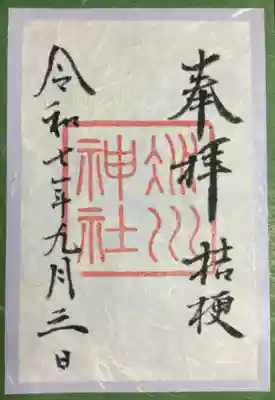 奉拝 桔梗
冰川
神社
令和七年九月三日